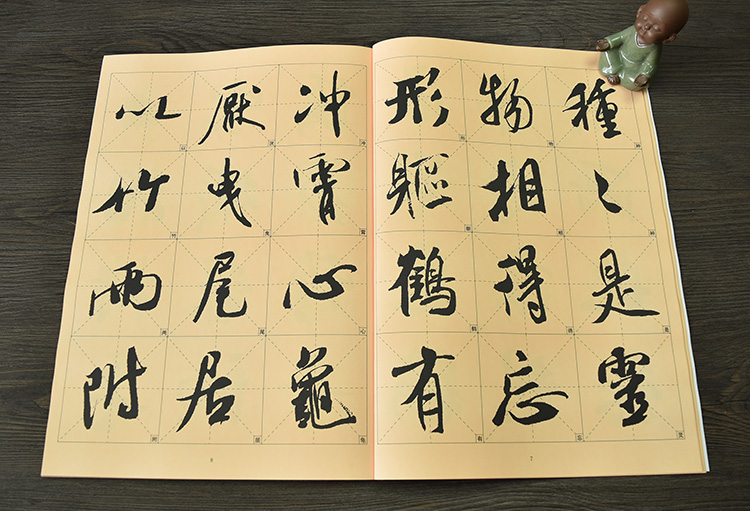 種〻是靈
物相得忘
形軀鶴有
7
冲霄心龜
厭曳尾居
以竹兩附
8